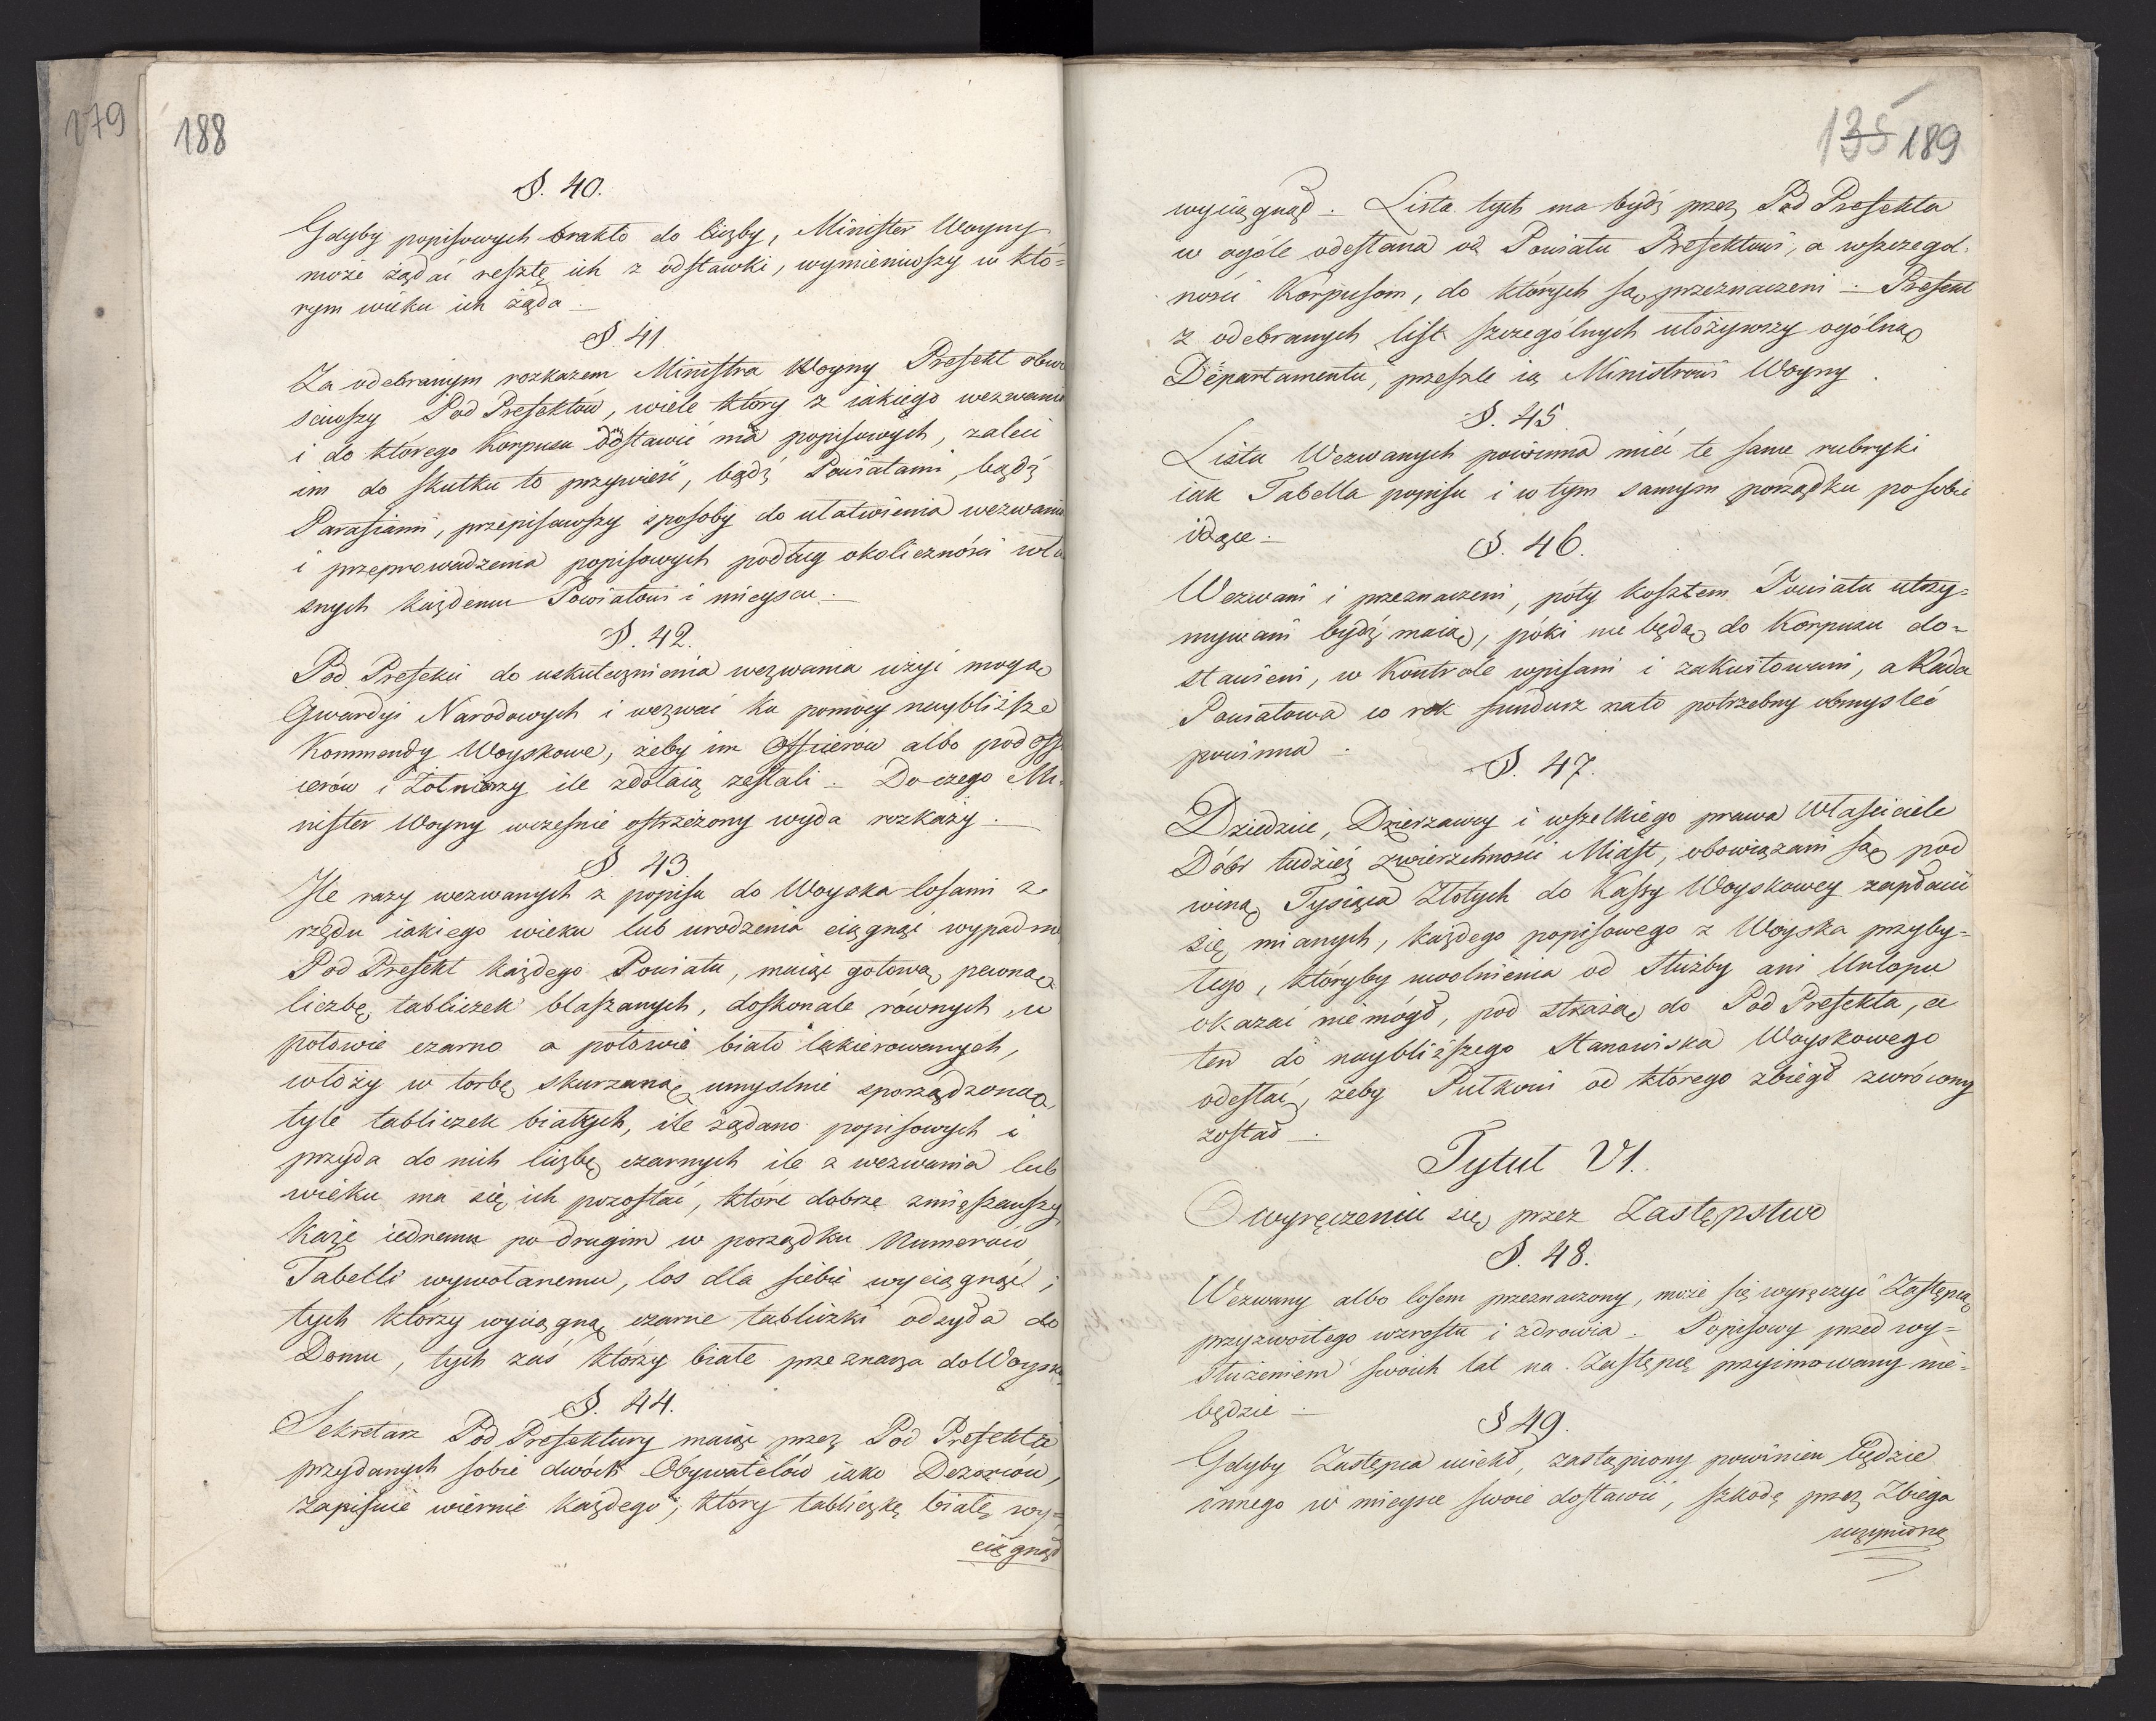 179
188
§. 40.
Gdyby popisowych brakło do liczby, Minister Woyny
może żądać resztę ich z odstawki, wymieniwszy w któ=
rym wieku ich żąda –
§ 41.
Za odebranym rozkazem Ministra Woyny Prefekt obwie
ściwszy Pod Prefektów, wiele który z iakiego wezwania
i do którego Korpusu dostawić ma popisowych, zaleci
im do skutku to przywieść, bądź Powiatami, bądź
Parafiami, przepisawszy sposoby do ułatwienia wezwania
i przeprowadzenia popisowych podług okoliczności wła
snych każdemu Powiatowi i mieyscu. –
§. 42.
Pod Prefekci do uskutecznienia wezwania użyć mogą
Gwardyi Narodowych i wezwać ku pomocy naybliższe
Kommendy Woyskowe, żeby im Officierów albo pod Offi
cierów i Żołnierzy ile zdołaią zesłali. – Do czego Mi=
nister Woyny wcześnie ostrzeżony wyda rozkazy. –
§ 43.
Ile razy wezwanych z popisu do Woyska losami z
rzędu iakiego wieku lub urodzenia ciągnąć wypadnie
Pod Prefekt każdego Powiatu, maiąc gotową, pewną
liczbę tabliczek blaszanych, doskonale równych, w
połowie czarno a połowie biało lakierowanych,
włoży w torbę skurzaną umyślnie sporządzoną
tyle tabliczek białych, ile żądano popisowych i
przyda do nich liczbę czarnych ile z wezwania lub
wieku ma się ich pozostać, które dobrze zmięszawszy
każe iednemu po drugim w porządku Numerow
Tabelli wywołanemu, los dla siebie wyciągnąć;
tych którzy wyciągną czarne tabliczki odsyła do
Domu, tych zaś którzy białe przeznacza do Woyska.
§. 44.
Sekretarz Pod Prefektury maiąc przez Pod Prefekta
przydanych sobie dwóch Obywatelów iako Dozorców,
zapisuie wiernie każdego, który tabliczkę białę wy=
ciągnął
135 189
wyciągnął. – Lista tych ma bydź przez Pod Prefekta
w ogóle odesłana od Powiatu Prefektowi, a wszczegól=
ności Korpusom, do których są przeznaczeni. – Prefekt
z odebranych list szczególnych ułożywszy ogólną
Departamentu, prześle ią Ministrowi Woyny.
§. 45
Lista Wezwanych powinna mieć te same rubryki
iak Tabella popisu i w tym samym porządku po sobie
idące. –
§. 46.
Wezwani i przeznaczeni, póty kosztem Powiatu utrzy=
mywani bydź maią, póki nie będą do Korpusu do=
stawieni, w Kontrole wpisani i zakwitowani, a Rada
Powiatowa co rok fundusz nato potrzebny obmysleć
powinna –
§. 47.
Dziedzice, Dzierzawcy i wszelkiego prawa Właściciele
Dóbr tudzież zwierzchności Miast, obowiązani są pod
winą Tysiąca Złotych do Kassy Woyskowey zapłacić
się mianych, każdego popisowego z Woyska przyby=
łego, któryby uwolnienia od Służby ani Urlopu
okazać nie mógł, pod strażą do Pod Prefekta, a
ten do naybliższego Stanowiska Woyskowego
odesłać, żeby Pułkowi od którego zbiegł zwrócony
został –
Tytuł VI.
O wyręczeniu się przez Zastępstwo
§. 48.
Wezwany albo losem przeznaczony, może się wyręczyć Zastępcą
przyzwoitego wzrostu i zdrowia. – Popisowy przed wy=
służeniem swoich lat na Zastępcę przyimowany nie=
będzie –
§ 49.
Gdyby Zastępca uciekł, zastąpiony powinien będzie
innego w mieysce swoie dostawić, szkodę przez Zbiega
uczynioną